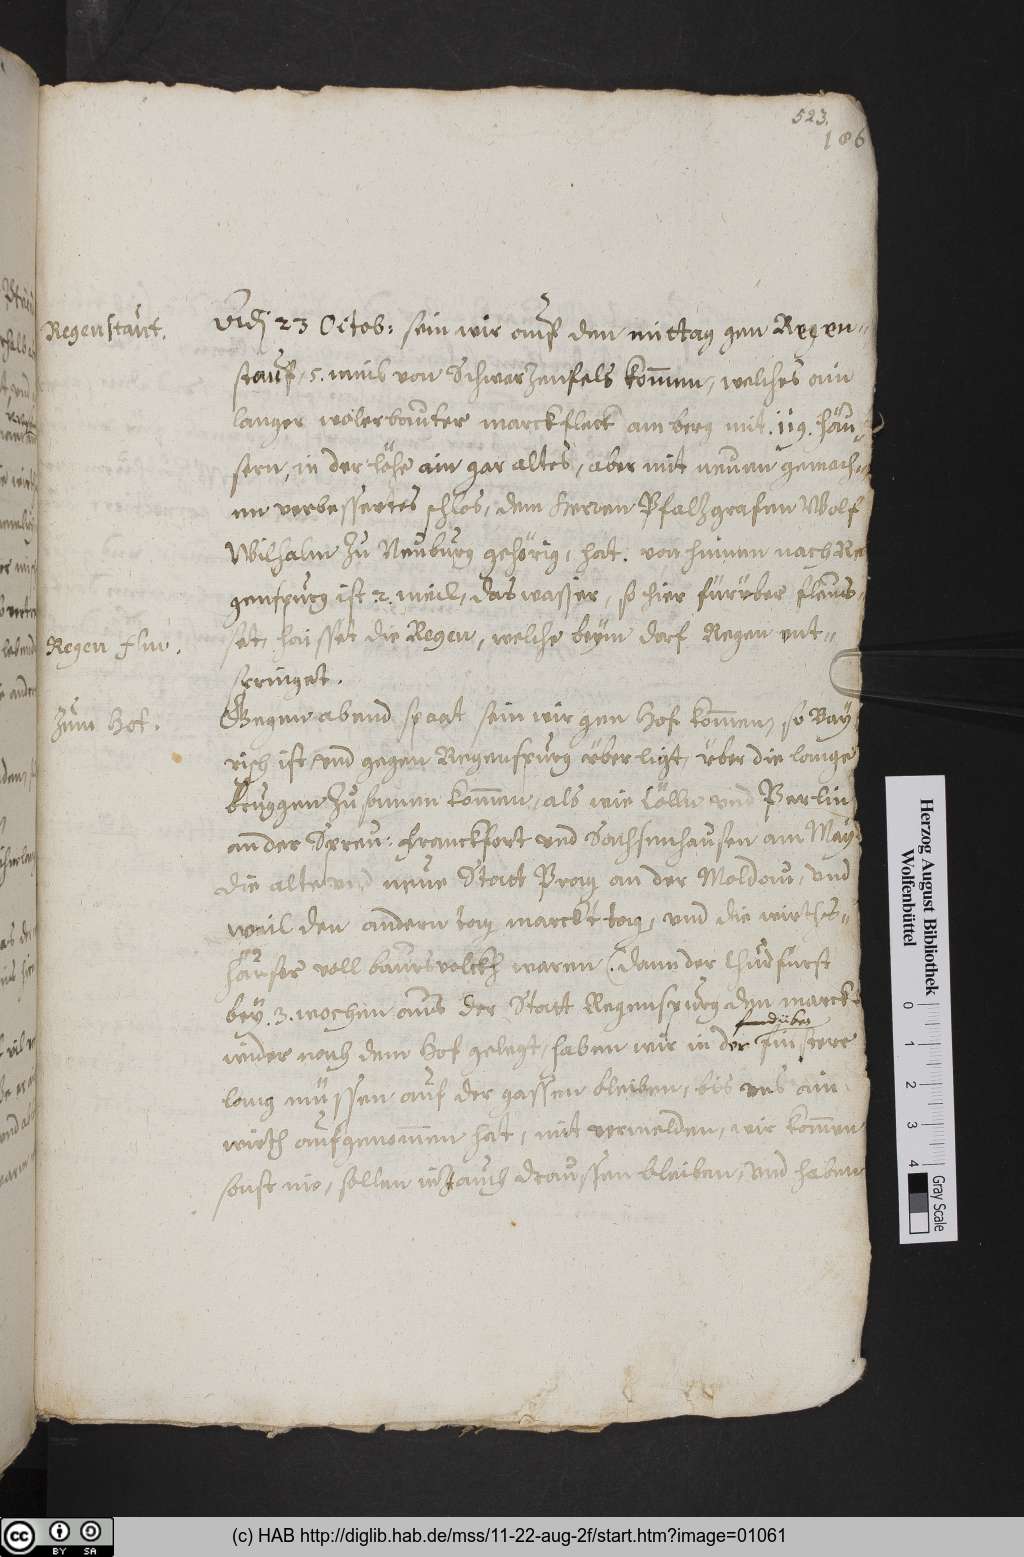 523.
186
Regenstauf.
Didj 23 Octob: sein wir auf den mittag gen Regen-
stauf, 5. meils von Schwarzenfels kommen, welches ain
langer wolerbauter marckfleck am berg mit 119. häu-
sern, in der höhe ain gar altes, aber mit neuen gemäch-
en verbessertes schlos, dem herren Pfalzgrafen Wolf
Wilhalm zu Neuburg gehörig, hat. von hinnen nach Re
genspurg ist 2. meil, das wasser, so hier fürüber fleus-
Regen fluv.
set, haisset die Regen, welche beÿm dorf Regen ent-
springet.
Zum Hof.
Gegen abend spaat sein wir gen Hof kommen, so Baÿ
risch ist, und gegen Regenspurg über ligt, über die lange
bruggen zusamen kommen, als wie Cölln und Berlin
an der Spreu: Franckfort und Sachsenhausen am Maÿ
die alte und neue Statt Prag an der Moldau, und
weil den andern tag marckttag, und die wirths-
häuser voll baursvolckh waren (dann der Churfürst
beÿ 3. wochen aus der Statt Regenspurg den marckt
wider nach dem Hof gelegt, haben wir in der finstere
lang müssen auf der gassen bleiben, bis uns ain
wirth aufgenommen hat, mit vermelden, wir kommen
sonst nie, sollen iezt auch draussen bleiben, und haben
Herzog August Bibliothek
Wolfenbüttel
0 1 2 3 4
Gray Scale
(c) HAB http://diglib.hab.de/mss/11-22-aug-2f/start.htm?image=01061
CC BY SA